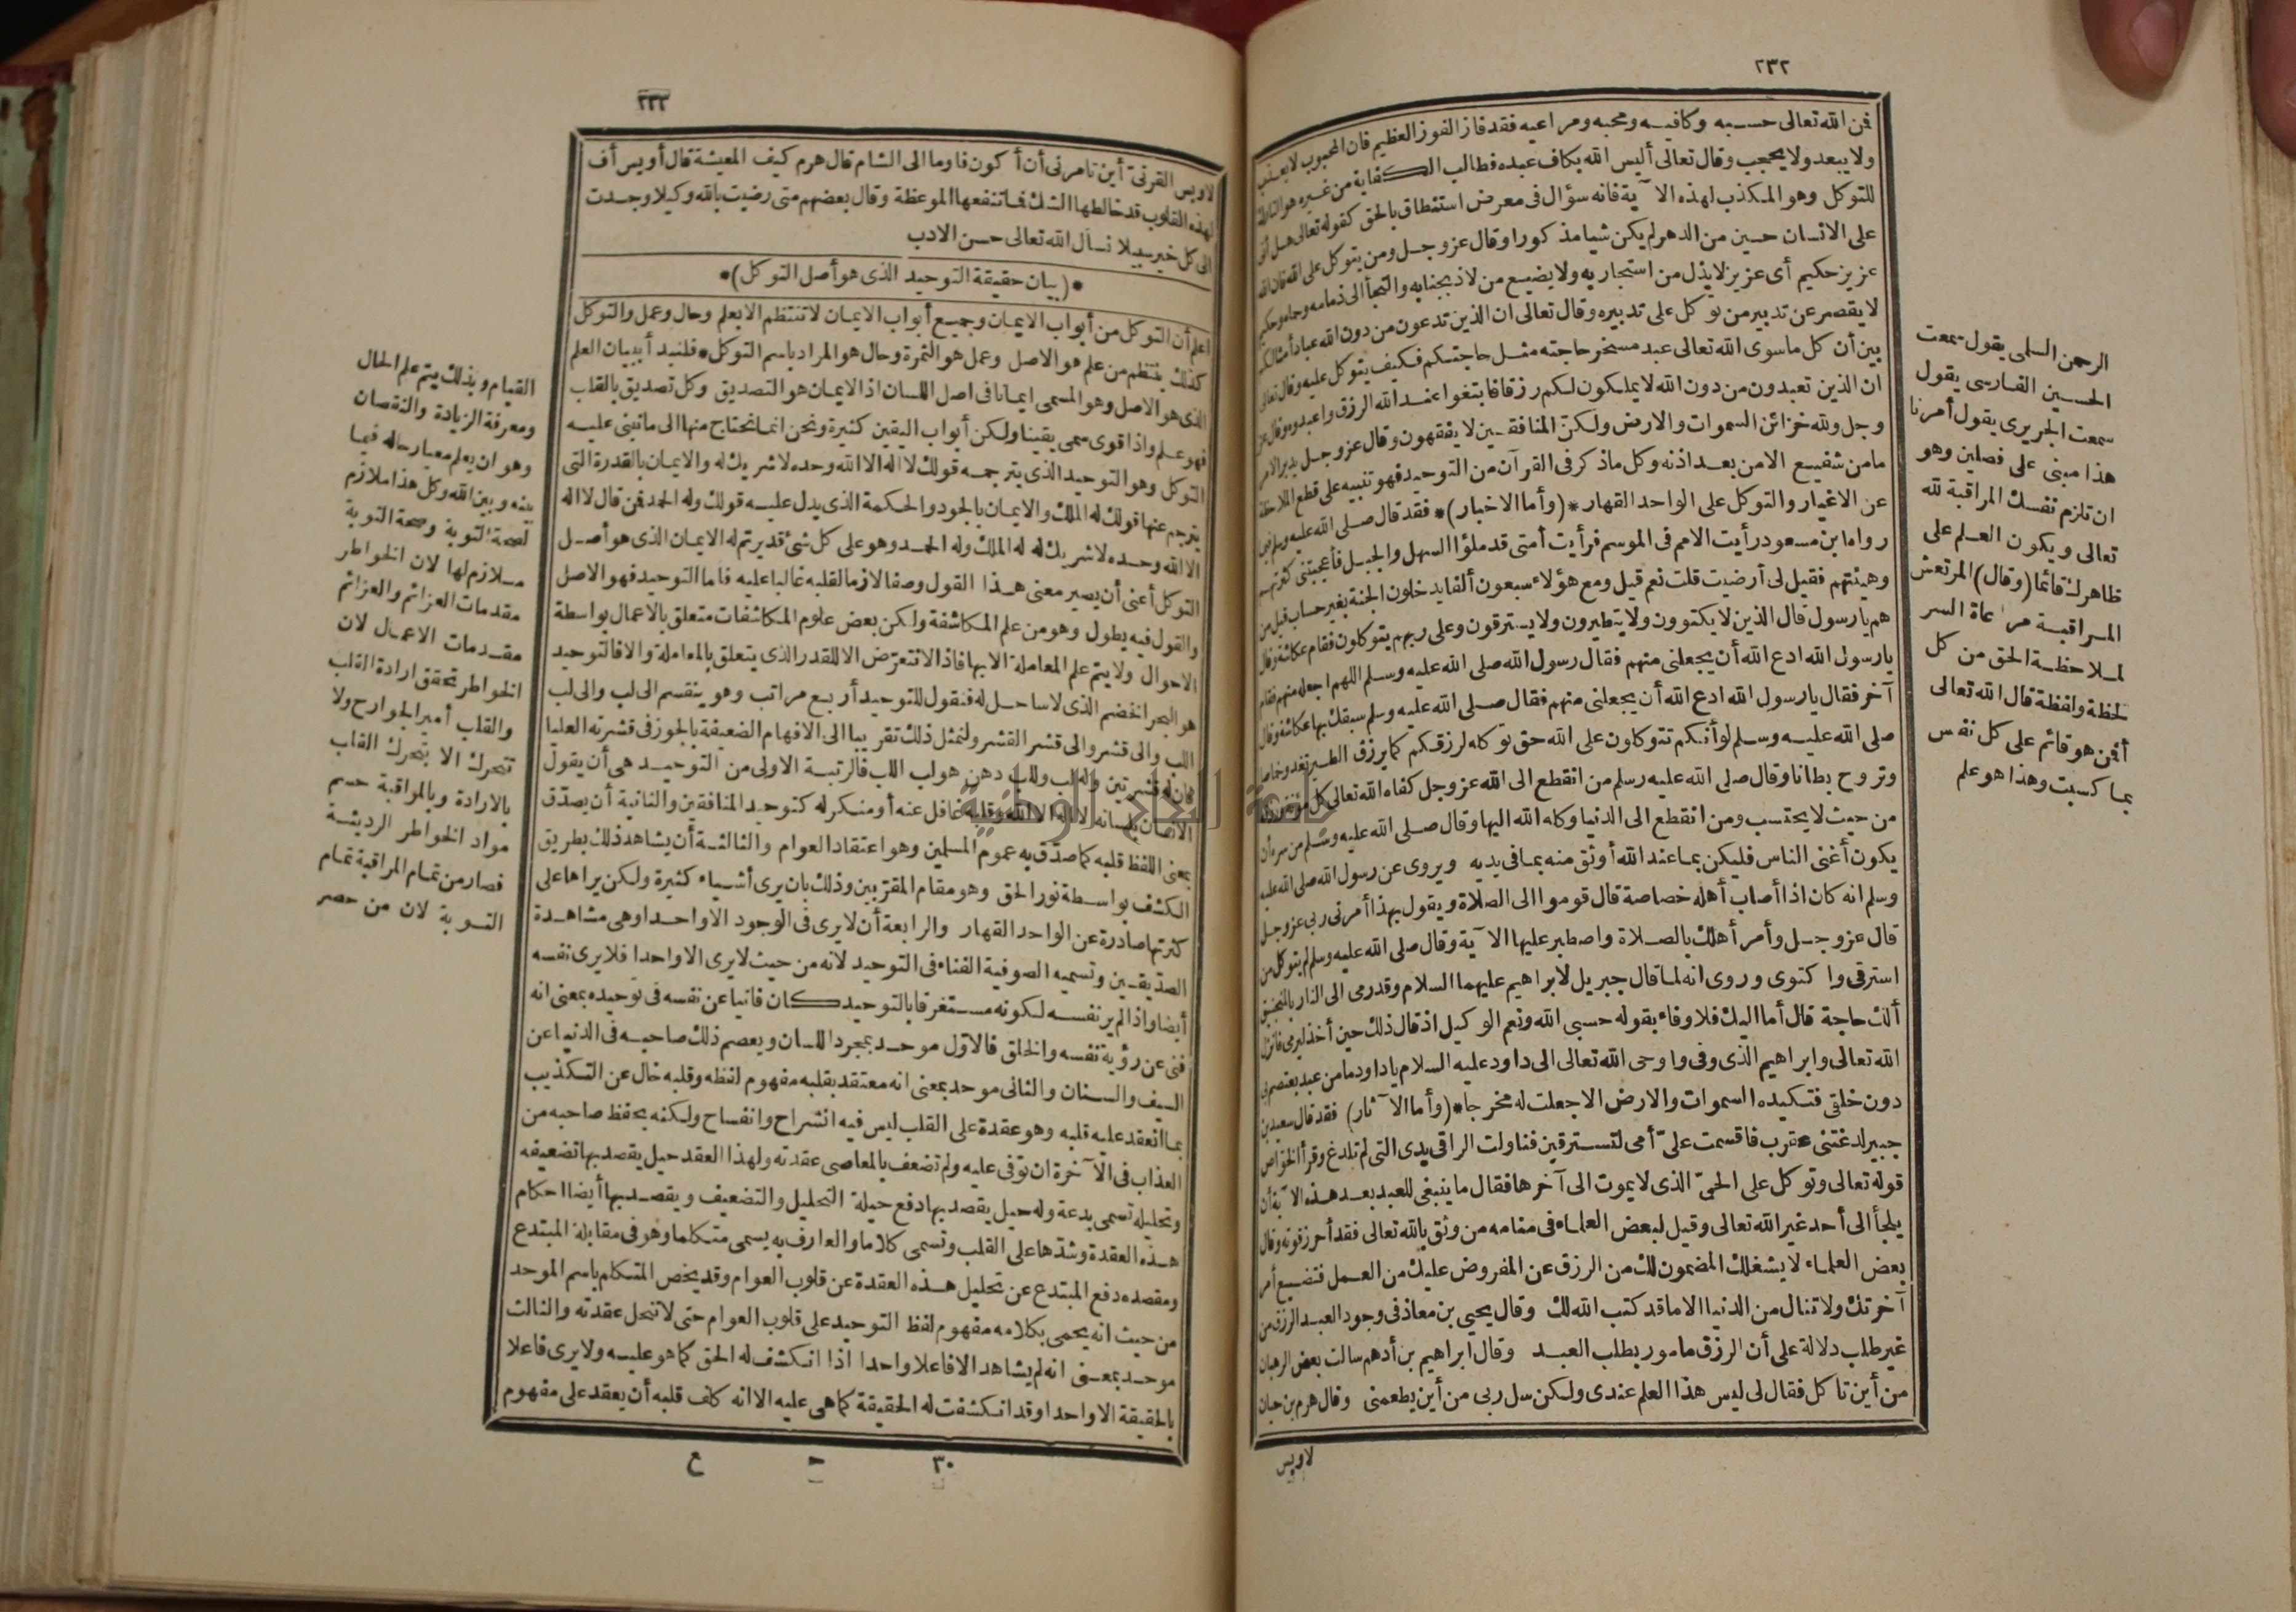 ٢٣٢
فمن الله تعالى حسبه وكافيه ومحبه ومراعيه فقد فاز الفوز العظيم فان المحبوب لا يعذب
ولا يبعد ولا يحجب وقال تعالى أليس الله بكاف عبده فطالب الكفاية من غيره هو التارك
للتوكل وهو المكذب لهذه الآية فانه سؤال فى معرض استنطاق بالحق كقوله تعالى هل أتى
على الانسان حين من الدهر لم يكن شيأ مذكورا وقال عز وجل ومن يتوكل على الله فان الله
عزيز حكيم أى عزيز لا يذل من استجار به ولا يضيع من لاذ بجنابه والتجأ الى ذمامه وحماه وحكيم
لا يقصر عن تدبير من توكل على تدبيره وقال تعالى ان الذين تدعون من دون الله عباد أمثالكم
بين أن كل ما سوى الله تعالى عبد مسخر حاجته مثل حاجتكم فكيف يتوكل عليه وقال تعالى
ان الذين تعبدون من دون الله لا يملكون لكم رزقا فابتغوا عند الله الرزق واعبدوه وقال عز
وجل ولله خزائن السموات والارض ولكن المنافقين لا يفقهون وقال عز وجل يدبر الامر
ما من شفيع الا من بعد اذنه وكل ما ذكر فى القرآن من التوحيد فهو تنبيه على قطع الملاحظة
عن الاغيار والتوكل على الواحد القهار *(وأما الاخبار)* فقد قال صلى الله عليه وسلم فيما
رواه ابن مسعود رأيت الامم فى الموسم فرأيت أمتى قد ملؤا السهل والجبل فأعجبتنى كثرتهم
وهيئتهم فقيل لى أرضيت قلت نعم قيل ومع هؤلاء سبعون ألفا يدخلون الجنة بغير حساب قيل من
هم يا رسول قال الذين لا يكتوون ولا يتطيرون ولا يسترقون وعلى ربهم يتوكلون فقام عكاشة وقال
يا رسول الله ادع الله أن يجعلنى منهم فقال رسول الله صلى الله عليه وسلم اللهم اجعله منهم فقام
آخر فقال يا رسول الله ادع الله أن يجعلنى منهم فقال صلى الله عليه وسلم سبقك بها عكاشة وقال
صلى الله عليه وسلم لو أنكم تتوكلون على الله حق توكله لرزقكم كما يرزق الطير تغدو خماصا
وتروح بطانا وقال صلى الله عليه وسلم من انقطع الى الله عز وجل كفاه الله تعالى كل مؤنة ورزقه
من حيث لا يحتسب ومن انقطع الى الدنيا وكله الله اليها وقال صلى الله عليه وسلم من سره أن
يكون أغنى الناس فليكن بما عند الله أوثق منه بما فى يديه ويروى عن رسول الله صلى الله عليه
وسلم انه كان اذا أصاب أهله خصاصة قال قوموا الى الصلاة ويقول بهذا أمرنى ربى عز وجل
قال عز وجل وأمر أهلك بالصلاة واصطبر عليها الآية وقال صلى الله عليه وسلم لم يتوكل من
استرقى واكتوى وروى انه لما قال جبريل لابراهيم عليهما السلام وقد رمى الى النار بالمنجنيق
ألك حاجة قال أما اليك فلا وفاء بقوله حسبى الله ونعم الوكيل اذ قال ذلك حين أخذ ليرمى فأنزل
الله تعالى وابراهيم الذى وفى واوحى الله تعالى الى داود عليه السلام يا داود ما من عبد يعتصم بى
دون خلقى فتكيده السموات والارض الا جعلت له مخرجا *(وأما الآثار) فقد قال سعيد بن
جبير لدغتنى عقرب فاقسمت علىّ أمى لتسترقين فناولت الراقى يدى التى لم تلدغ وقرأ الخواص
قوله تعالى وتوكل على الحىّ الذى لا يموت الى آخرها فقال ما ينبغى للعبد بعد هذه الآية أن
يلجأ الى أحد غير الله تعالى وقيل لبعض العلماء فى منامه من وثق بالله تعالى فقد أحرز قوته وقال
بعض العلماء لا يشغلك المضمون لك من الرزق عن المفروض عليك من العمل فتضيع أمر
آخرتك ولا تنال من الدنيا الا ما قد كتب الله لك وقال يحيى بن معاذ فى وجود العبد الرزق من
غير طلب دلالة على أن الرزق مأمور بطلب العبد وقال ابراهيم بن أدهم سألت بعض الرهبان
من أين تأكل فقال لى ليس هذا العلم عندى ولكن سل ربى من أين يطعمنى وقال هرم بن حيان
لاويس
الرحمن السلمى يقول سمعت
الحسين الفارسى يقول
سمعت الجريرى يقول أمرنا
هذا مبنى على فصلين وهو
ان تلزم نفسك المراقبة لله
تعالى ويكون العلم على
ظاهرك قائما (وقال) المرتعش
المراقبة مراعاة السر
لملاحظة الحق من كل
لحظة ولفظة قال الله تعالى
أفمن هو قائم على كل نفس
بما كسبت وهذا هو علم
٢٣٣
لاويس القرنى أين تأمرنى أن أكون فاومأ الى الشام قال هرم كيف المعيشة قال أويس أف
لهذه القلوب قد خالطها الشك فما تنفعها الموعظة وقال بعضهم متى رضيت بالله وكيلا وجدت
الى كل خير سبيلا نسأل الله تعالى حسن الادب
*(بيان حقيقة التوحيد الذى هو أصل التوكل)*
اعلم أن التوكل من أبواب الايمان وجميع أبواب الايمان لا تنتظم الا بعلم وحال وعمل والتوكل
كذلك ينتظم من علم هو الاصل وعمل هو الثمرة وحال هو المراد باسم التوكل* فلنبدأ ببيان العلم
الذى هو الاصل وهو المسمى ايمانا فى اصل اللسان اذ الايمان هو التصديق وكل تصديق بالقلب
فهو علم واذا قوى سمى يقينا ولكن أبواب اليقين كثيرة ونحن انما نحتاج منها الى ما نبنى عليه
التوكل وهو التوحيد الذى يترجمه قولك لا اله الا الله وحده لا شريك له والايمان بالقدرة التى
يترجم عنها قولك له الملك والايمان بالجود والحكمة الذى يدل عليه قولك وله الحمد فمن قال لا اله
الا الله وحده لا شريك له له الملك وله الحمد وهو على كل شئ قدير تم له الايمان الذى هو أصل
التوكل أعنى أن يصير معنى هذا القول وصفا لازما لقلبه غالبا عليه فاما التوحيد فهو الاصل
والقول فيه يطول وهو من علم المكاشفة ولكن بعض علوم المكاشفات متعلق بالاعمال بواسطة
الاحوال ولا يتم علم المعاملة الا بها فاذا لا نتعرّض الا للقدر الذى يتعلق بالمعاملة والا فالتوحيد
هو البحر الخضم الذى لا ساحل له فنقول للتوحيد أربع مراتب وهو ينقسم الى لب والى لب
اللب والى قشر والى قشر القشر ولنمثل ذلك تقريبا الى الافهام الضعيفة بالجوز فى قشرته العليا
فان له قشرتين وله لب وللب دهن هو لب اللب فالرتبة الاولى من التوحيد هى أن يقول
الانسان بلسانه لا اله الا الله وقلبه غافل عنه أو منكر له كتوحيد المنافقين والثانية أن يصدّق
بمعنى اللفظ قلبه كما صدّق به عموم المسلمين وهو اعتقاد العوام والثالثة أن يشاهد ذلك بطريق
الكشف بواسطة نور الحق وهو مقام المقرّبين وذلك بان يرى أشياء كثيرة ولكن يراها على
كثرتها صادرة عن الواحد القهار والرابعة أن لا يرى فى الوجود الا واحدا وهى مشاهدة
الصدّيقين وتسميه الصوفية الفناء فى التوحيد لانه من حيث لا يرى الا واحدا فلا يرى نفسه
أيضا واذا لم ير نفسه لكونه مستغرقا بالتوحيد كان فانيا عن نفسه فى توحيده بمعنى انه
فنى عن رؤية نفسه والخلق فالاوّل موحد بمجرد اللسان ويعصم ذلك صاحبه فى الدنيا عن
السيف والسنان والثانى موحد بمعنى انه معتقد بقلبه مفهوم لفظه وقلبه خال عن التكذيب
بما انعقد عليه قلبه وهو عقدة على القلب ليس فيه انشراح وانفساح ولكنه يحفظ صاحبه من
العذاب فى الآخرة ان توفى عليه ولم تضعف بالمعاصى عقدته ولهذا العقد حيل يقصد بها تضعيفه
وتحليله تسمى بدعة وله حيل يقصد بها دفع حيلة التحليل والتضعيف ويقصد بها أيضا احكام
هذه العقدة وشدّها على القلب وتسمى كلاما والعارف به يسمى متكلما وهو فى مقابلة المبتدع
ومقصده دفع المبتدع عن تحليل هذه العقدة عن قلوب العوام وقد يخص المتكلم باسم الموحد
من حيث انه يحمى بكلامه مفهوم لفظ التوحيد على قلوب العوام حتى لا تنحل عقدته والثالث
موحد بمعنى انه لم يشاهد الا فاعلا واحدا اذا انكشف له الحق كما هو عليه ولا يرى فاعلا
بالحقيقة الا واحدا وقد انكشفت له الحقيقة كما هى عليه الا انه كلف قلبه أن يعقد على مفهوم
٣٠ ع
القيام وبذلك يتم علم الحال
ومعرفة الزيادة والنقصان
وهو ان يعلم معيار حاله فيما
بينه وبين الله وكل هذا ملازم
لصحة التوبة وصحة التوبة
ملازم لها لان الخواطر
مقدمات العزائم والعزائم
مقدمات الاعمال لان
الخواطر تحقق ارادة القلب
والقلب أمير الجوارح ولا
تتحرك الا بتحرك القلب
بالارادة وبالمراقبة حسم
مواد الخواطر الرديئة
فصار من تمام المراقبة تمام
التوبة لان من حصر
جامعة النجاح الوطنية